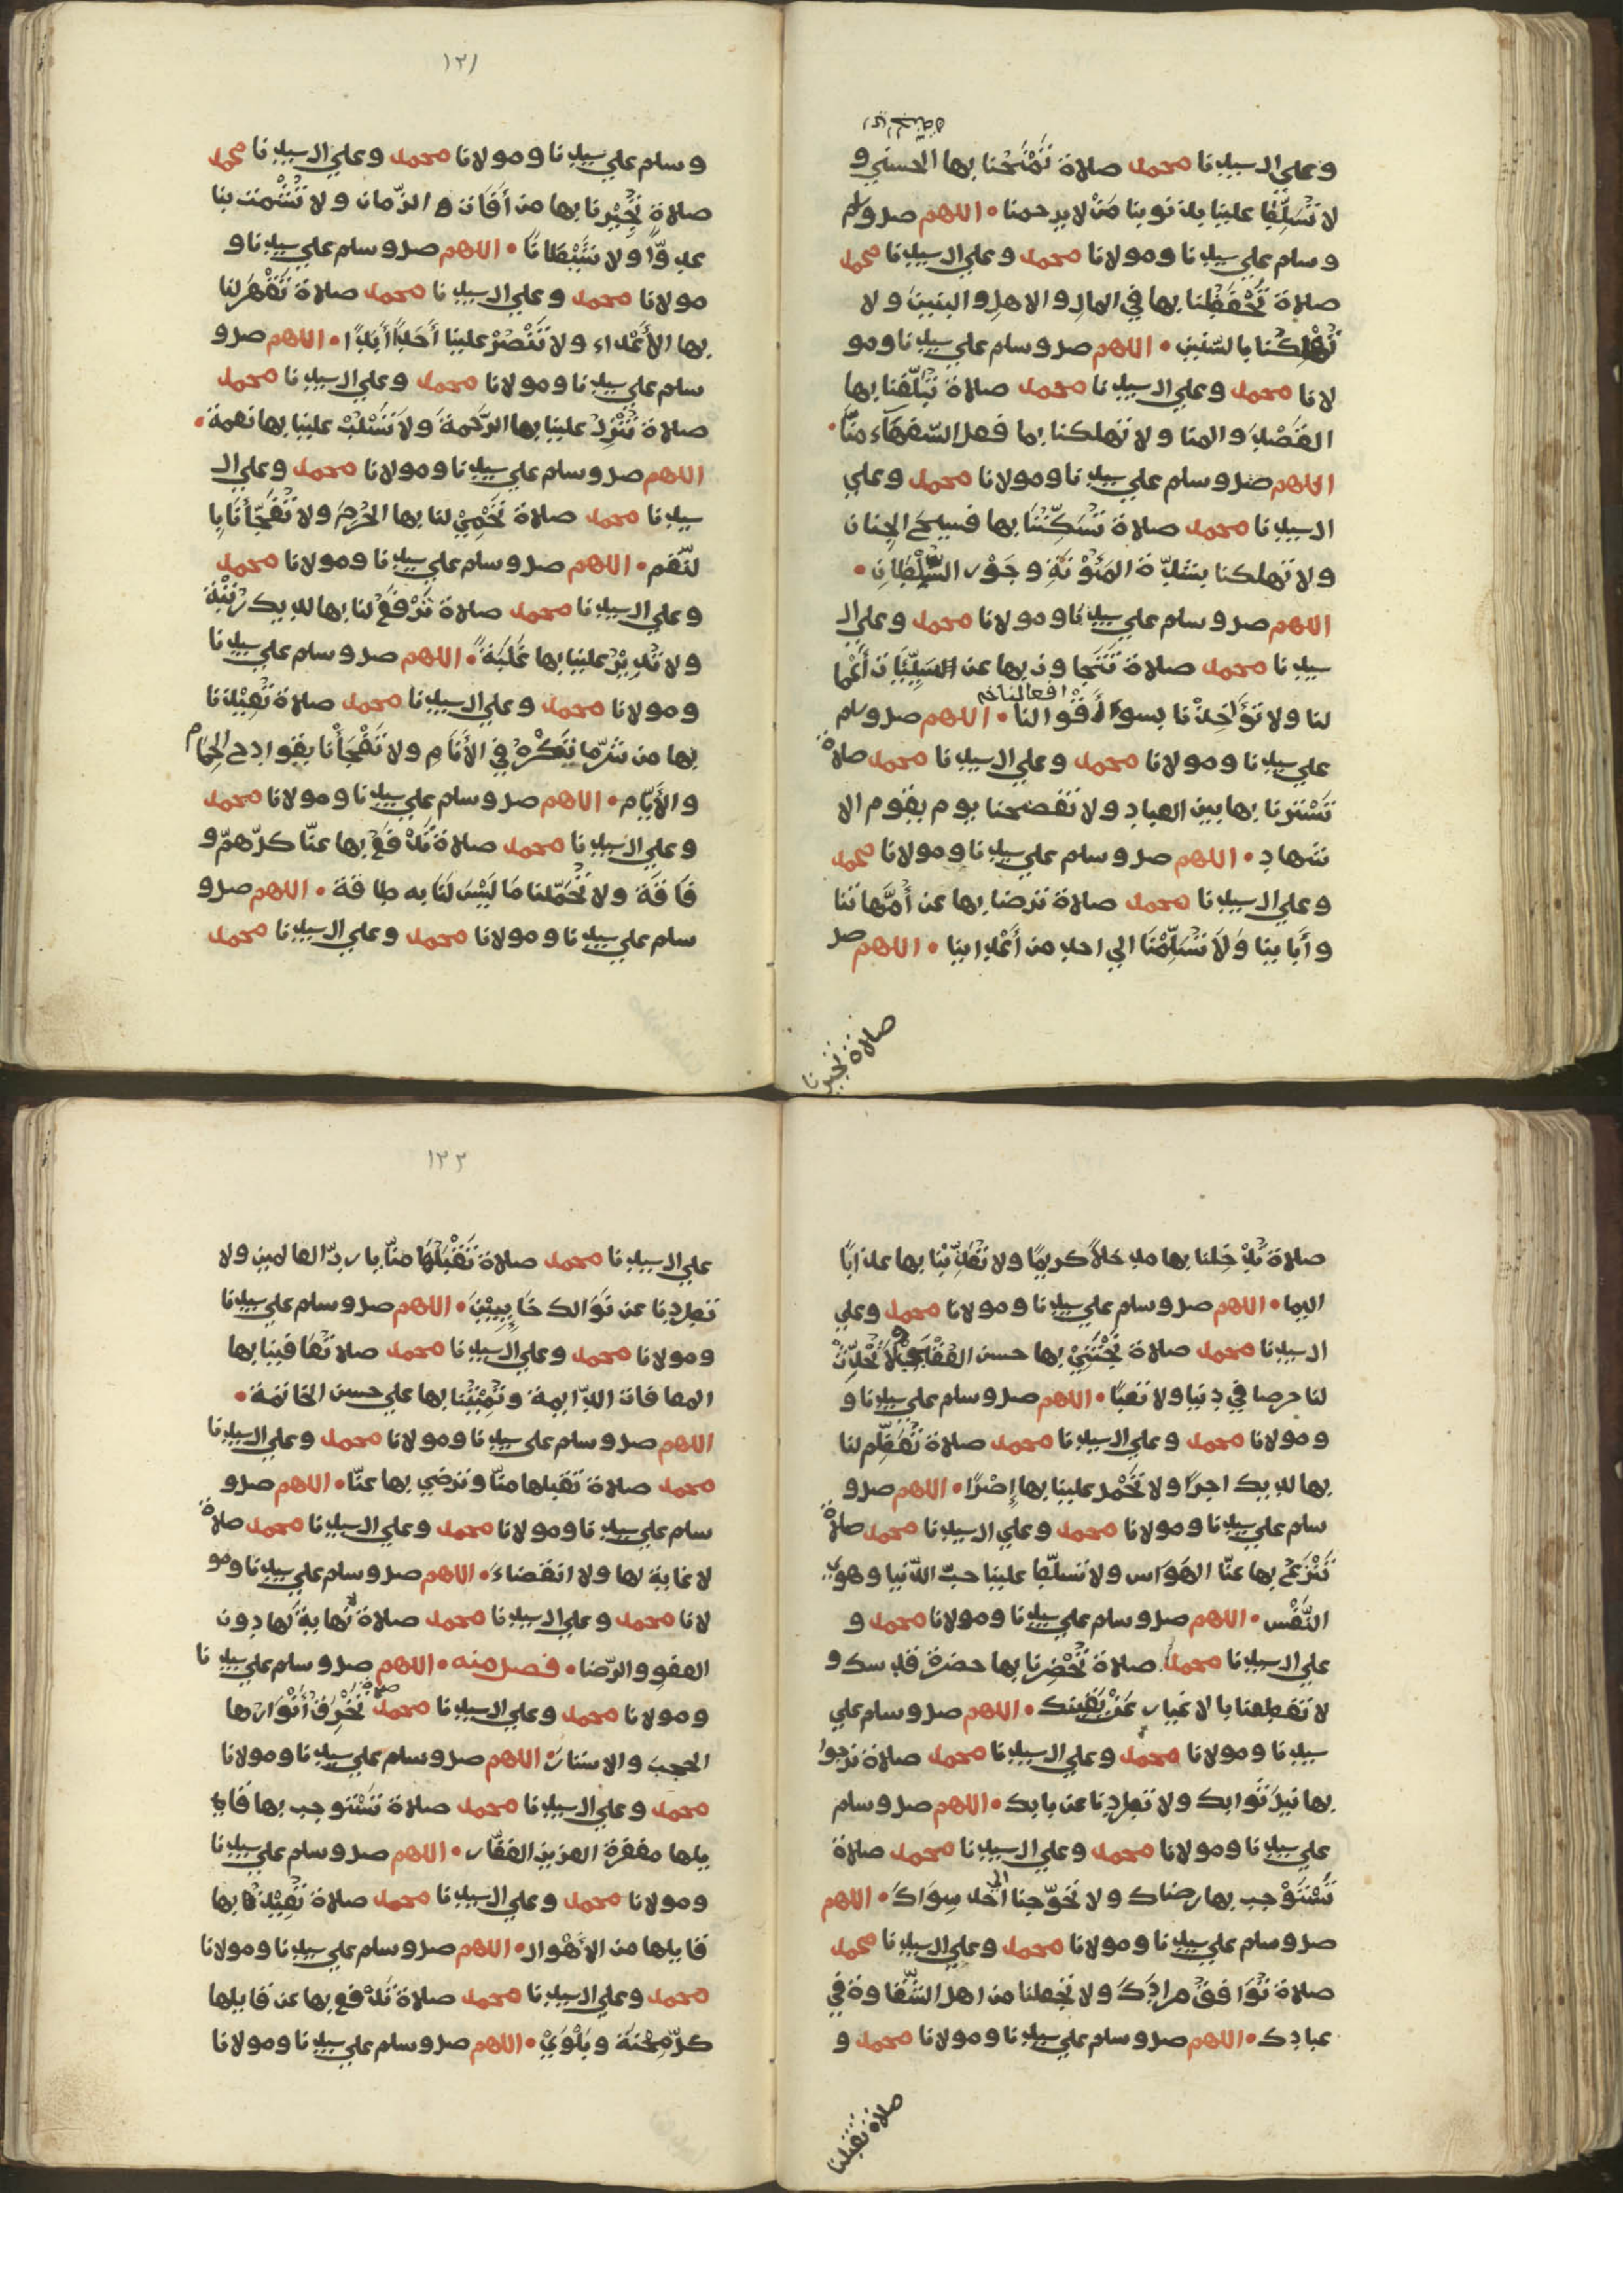 وعلي ال سيدنا محمد صلاة تمنحنا بها الحسني و
لا تسلط علينا بذنوبنا من لا يرحمنا • اللهم صل وسلم
وسلم علي سيدنا ومولانا محمد وعلي ال سيدنا محمد
صلاة تحفظنا بها في المال والاهل والبنين ولا
تهلكنا بالسنين • اللهم صل وسلم علي سيدنا ومو
لانا محمد وعلي ال سيدنا محمد صلاة تبلغنا بها
الفضل والمنا ولا تهلكنا بما فعل السفهاء منا •
اللهم صل وسلم علي سيدنا ومولانا محمد وعلي
ال سيدنا محمد صلاة تسكننا بها فسيح الجنان
ولا تهلكنا بشدة المئونة وجور السلطان •
اللهم صل وسلم علي سيدنا ومولانا محمد وعلي ال
سيدنا محمد صلاة تتجاوز بها عن السيئات أعما
لنا ولا تؤاخذنا بسوء أقوالنا • اللهم صل وسلم
افعالنا خم
علي سيدنا ومولانا محمد وعلي ال سيدنا محمد صلاة
تسترنا بها بين العباد ولا تفضحنا يوم يقوم الا
شهاد • اللهم صل وسلم علي سيدنا ومولانا محمد
وعلي ال سيدنا محمد صلاة ترضا بها عن أمهاتنا
وأباينا ولا تسلمنا الي احد من أعداينا • اللهم صل
صلاة تجيرنا
١٢١
وسلم علي سيدنا ومولانا محمد وعلي ال سيدنا محمد
صلاة تجيرنا بها من أفات الزمان ولا تشمت بنا
عدوا ولا شيطانا • اللهم صل وسلم علي سيدنا و
مولانا محمد وعلي ال سيدنا محمد صلاة تقهر لنا
بها الأعداء ولا تنصر علينا أحدا أبدا • اللهم صل و
سلم علي سيدنا ومولانا محمد وعلي ال سيدنا محمد
صلاة تنزل علينا بها الرحمة ولا تسلب علينا بها نعمة •
اللهم صل وسلم علي سيدنا ومولانا محمد وعلي ال
سيدنا محمد صلاة تحمي لنا بها الحرم ولا تفجأنا با
لنقم • اللهم صل وسلم علي سيدنا ومولانا محمد
وعلي ال سيدنا محمد صلاة ترفع لنا بها لديك رتبة
ولا تدير علينا بها غلبة • اللهم صل وسلم علي سيدنا
ومولانا محمد وعلي ال سيدنا محمد صلاة تعيذنا
بها من شر ما يكره في الأنام ولا تفجأنا بفوادح الحمام
والأيام • اللهم صل وسلم علي سيدنا ومولانا محمد
وعلي ال سيدنا محمد صلاة تدفع بها عنا كل هم و
فاقة ولا تحملنا ما ليس لنا به طاقة • اللهم صل و
سلم علي سيدنا ومولانا محمد وعلي ال سيدنا محمد
صلاة تدخلنا بها مدخلا كريما ولا تعذبنا بها عذابا
اليما • اللهم صل وسلم علي سيدنا ومولانا محمد وعلي
ال سيدنا محمد صلاة تجتني بها حسن العقبي ولا تحدث
لنا حرصا في دنيا ولا تعبا • اللهم صل وسلم علي سيدنا و
ومولانا محمد وعلي ال سيدنا محمد صلاة تعظم لنا
بها لديك اجرا ولا تحمل علينا بها إصرا • اللهم صل و
سلم علي سيدنا ومولانا محمد وعلي ال سيدنا محمد صلاة
تنزع بها عنا الهواس ولا تسلط علينا حب الدنيا وهوي
النفس • اللهم صل وسلم علي سيدنا ومولانا محمد و
علي ال سيدنا محمد صلاة تحضرنا بها حضرة قدسك و
لا تقطعنا بالاغيار عن يقينك • اللهم صل وسلم علي
سيدنا ومولانا محمد وعلي ال سيدنا محمد صلاة نرجوا
بها نيل ثوابك ولا تطردنا عن بابك • اللهم صل وسلم
علي سيدنا ومولانا محمد وعلي ال سيدنا محمد صلاة
نستوجب بها رضاك ولا تحوجنا الي احد سواك • اللهم
صل وسلم علي سيدنا ومولانا محمد وعلي ال سيدنا محمد
صلاة توافق مرادك ولا تجعلنا من اهل الشقاوة في
عبادك • اللهم صل وسلم علي سيدنا ومولانا محمد و
صلاة تقبلنا
١٢٢
علي ال سيدنا محمد صلاة تقبلها منا يا رب العالمين ولا
تطردنا عن نوالك خايبين • اللهم صل وسلم علي سيدنا
ومولانا محمد وعلي ال سيدنا محمد صلاة تعافينا بها
المعافات الدايمة وتميتنا بها علي حسن الخاتمة •
اللهم صل وسلم علي سيدنا ومولانا محمد وعلي ال سيدنا
محمد صلاة تقبلها منا وترضي بها عنا • اللهم صل و
سلم علي سيدنا ومولانا محمد وعلي ال سيدنا محمد صلاة
لا غاية لها ولا انقضاء • اللهم صل وسلم علي سيدنا ومو
لانا محمد وعلي ال سيدنا محمد صلاة لا نهاية لها دون
العفو والرضا • فصل منه • اللهم صل وسلم علي سيدنا
ومولانا محمد وعلي ال سيدنا محمد صلاة تخرق أنوارها
الحجب والاستار • اللهم صل وسلم علي سيدنا ومولانا
محمد وعلي ال سيدنا محمد صلاة تستوجب بها قا
يلها مغفرة العزيز الغفار • اللهم صل وسلم علي سيدنا
ومولانا محمد وعلي ال سيدنا محمد صلاة تعيذ بها
قايلها من الأهوال • اللهم صل وسلم علي سيدنا ومولانا
محمد وعلي ال سيدنا محمد صلاة تدفع بها عن قايلها
كل محنة وبلوي • اللهم صل وسلم علي سيدنا ومولانا